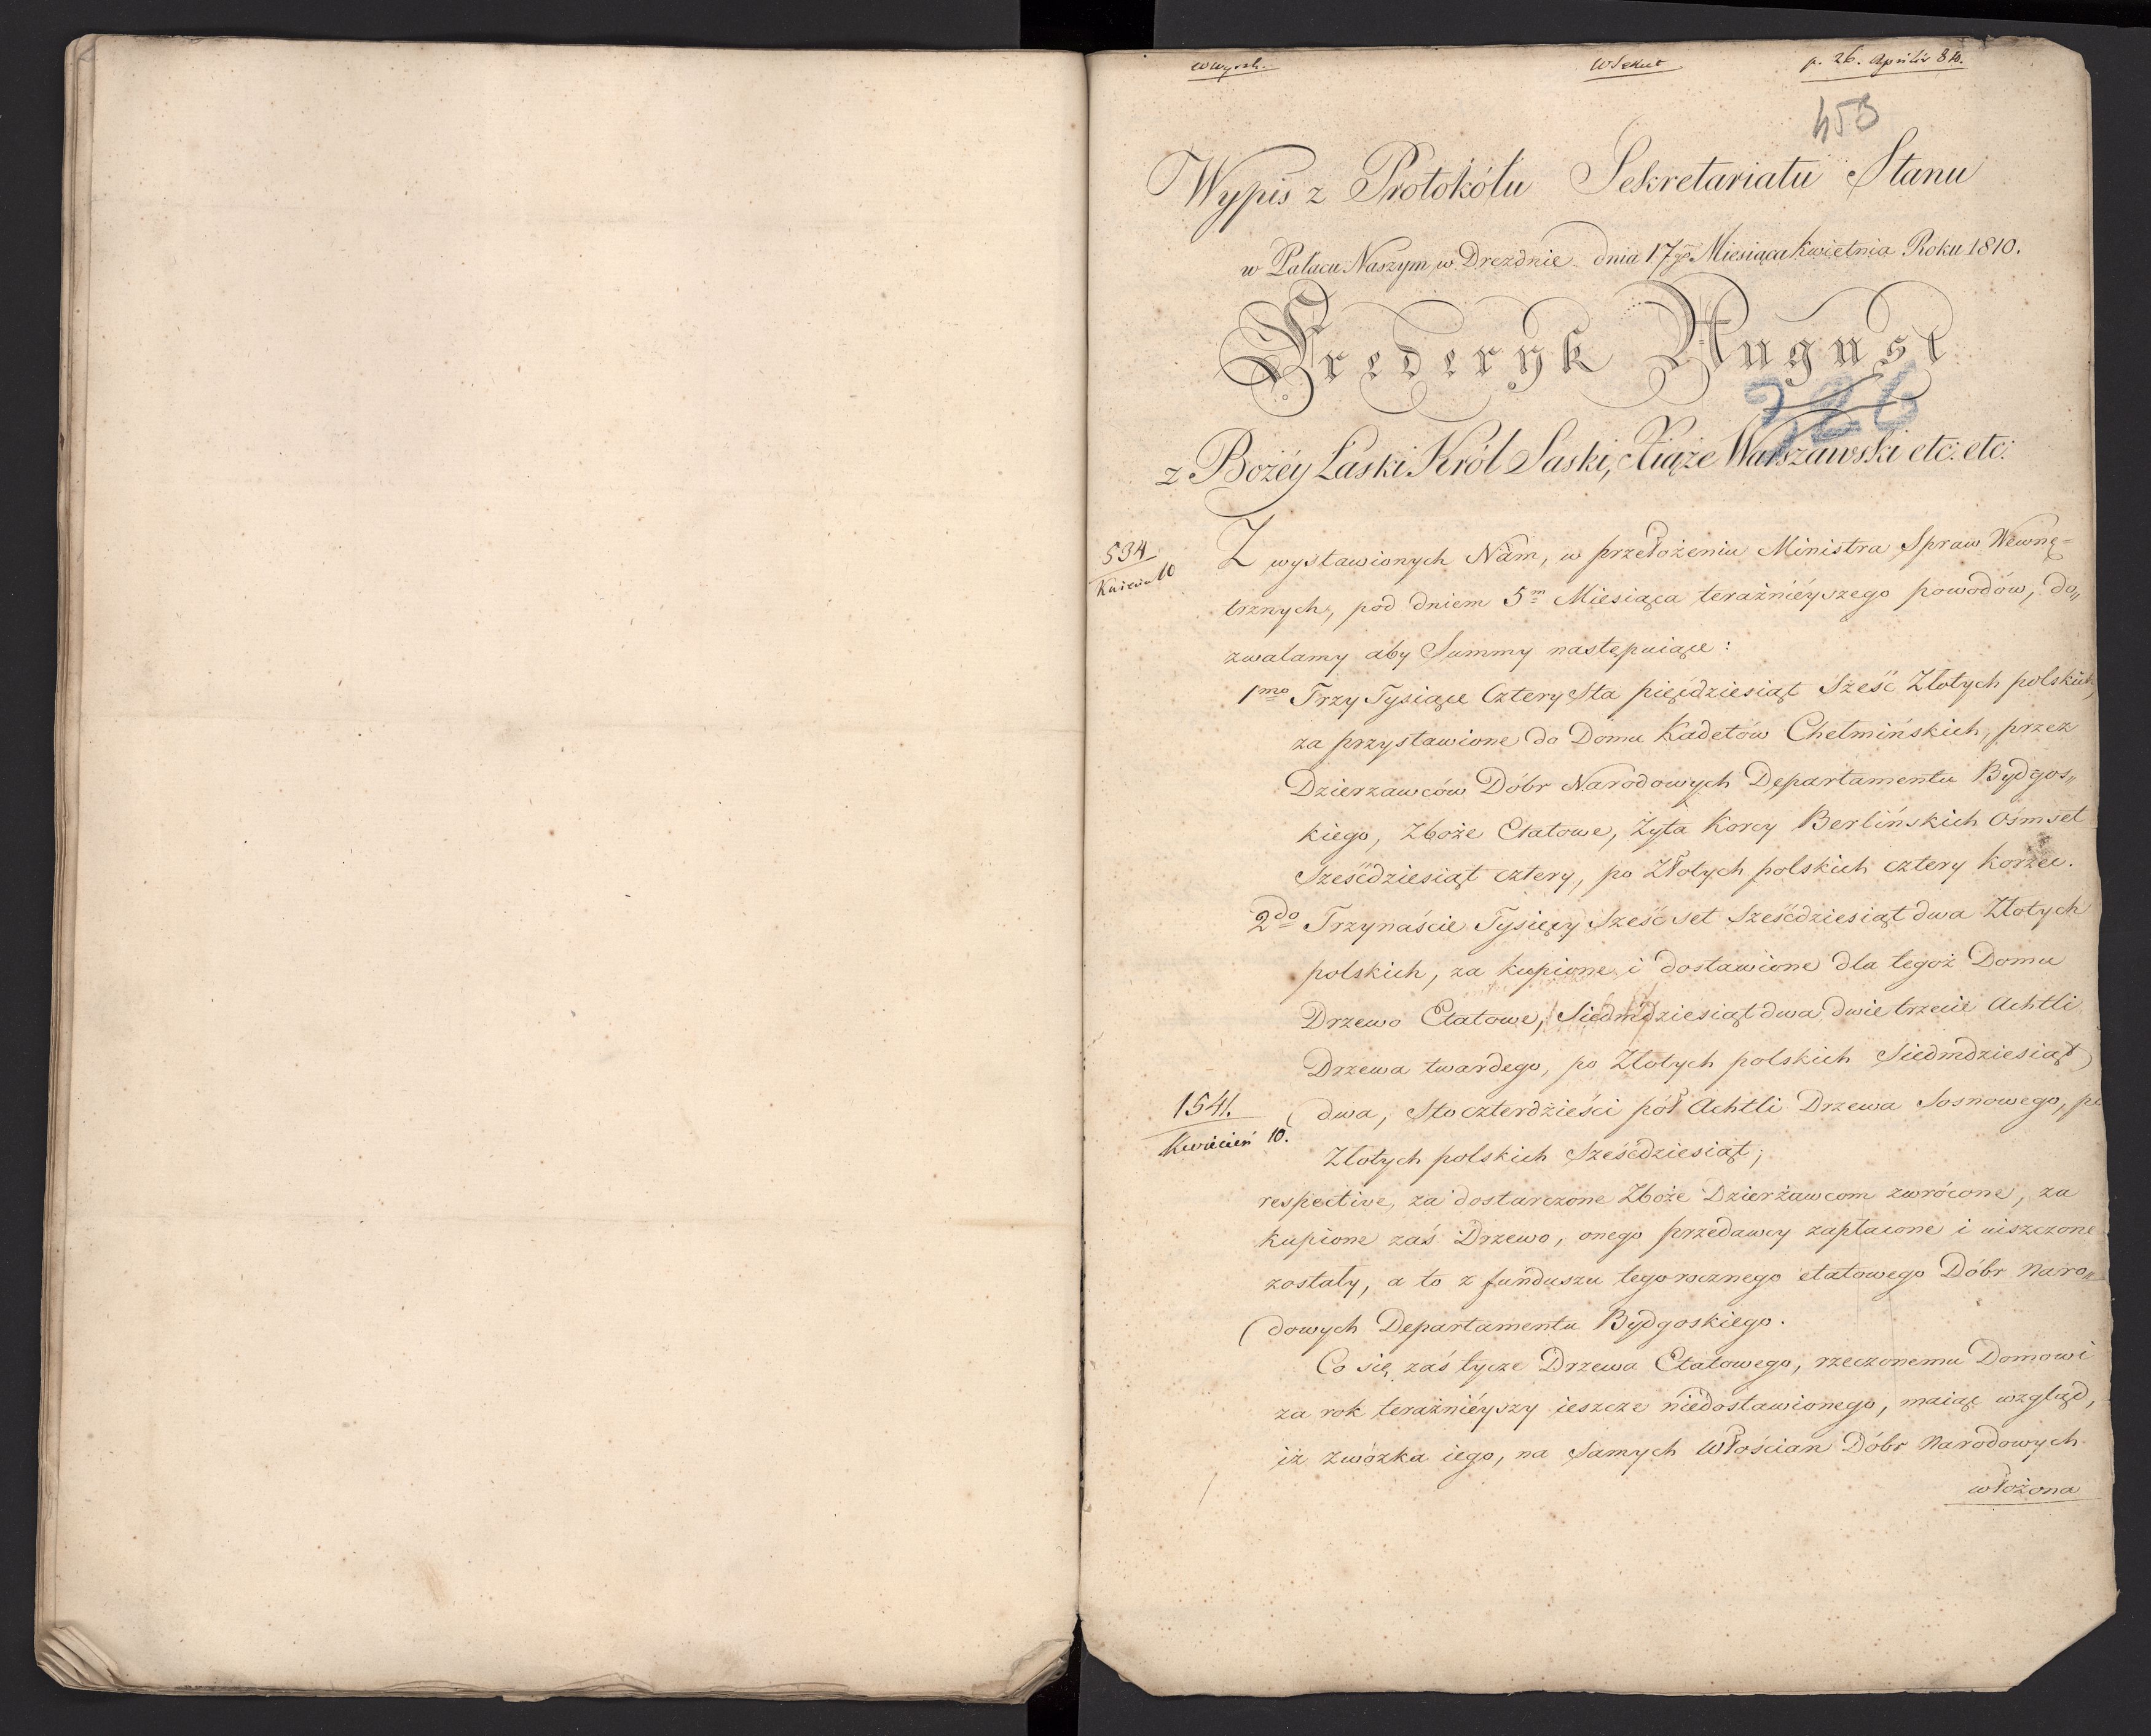 p. 26. Aprilis 810.
453
Wypis z Protokółu Sekretariatu Stanu
w Pałacu Naszym w Dreźdnie dnia 17go Miesiąca Kwietnia Roku 1810.
Frederyk August
226
z Bożéy Łaski Król Saski, Xiąże Warszawski etc: etc:
534
Kwiecień 10
Z wystawionych Nam, w przełożeniu Ministra Spraw Wewnę=
trznych, pod dniem 5m Miesiąca teraźnieyszego powodów, do„
zwalamy aby Summy następuiące:
1mo Trzy Tysiące Cztery Sta pięćdziesiąt Sześć Złotych polskich,
za przystawione do Domu Kadetów Chełmińskich, przez
Dzierzawców Dóbr Narodowych Departamentu Bydgos„
kiego, Zboże Etatowe, Żyta Korcy Berlińskich Ośmset
Sześćdziesiąt cztery, po Złotych polskich cztery korzec.
2do Trzynaście Tysięcy Sześć set Sześćdziesiąt dwa Złotych
polskich, za kupione i dostawione dla tegoż Domu
Drzewo Etatowe, Siedmdziesiąt dwa dwie trzecie Achtli
Drzewa twardego, po Złotych polskich Siedmdziesiąt
1541.
Kwiecień 10.
dwa, Sto czterdzieści pół Achtli Drzewa Sosnowego, po
Złotych polskich Sześćdziesiąt;
respective, za dostarczone Zboże Dzierżawcom zwrócone, za
kupione zaś Drzewo, onego przedawcy zapłacone i uiszczone
zostały, a to z funduszu tegorocznego etatowego Dóbr Naro„
dowych Departamentu Bydgoskiego.
Co się zaś tycze Drzewa Etatowego, rzeczonemu Domowi
za rok teraźnieyszy ieszcze niedostawionego, maiąc wzgląd,
iż zwózka iego, na samych Włościan Dóbr Narodowych
włożona